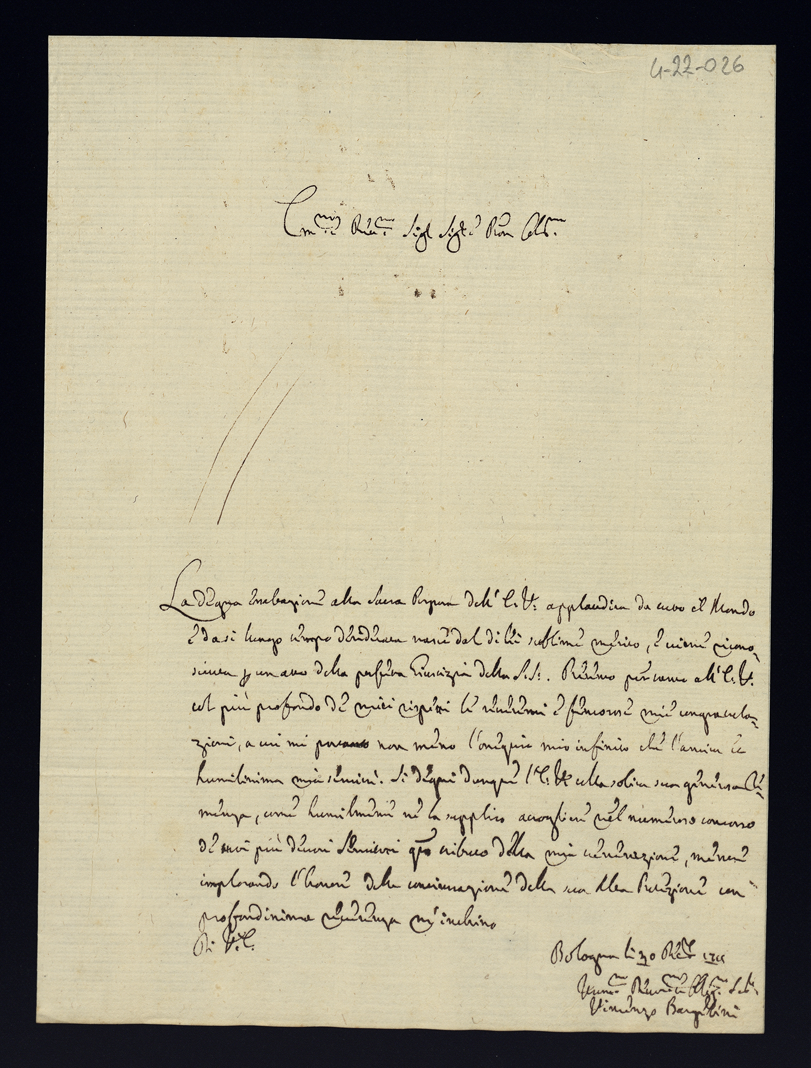 4-22-026
Em.mo e Rev.mo Sig.r Sig.r e Pron Col.mo
La degna esaltazione alla Sacra Porpora dell' E. V. applaudita da tutto il Mondo
e da sì lungo tempo nasce dal di lei sublime merito, e viene ricono-
sciuta p un atto della perfetta Giustizia della S. S. pertanto all' E. V.
col più profondo de miei rispetti le e mie congratula-
zioni, a cui mi non meno l'ossequio mio infinito che l'antica et
humilissima mia servitù. Si degni dunque l' E. V. colla solita sua generosa Cle-
menza, come humilmente ne la supplico accogliere nel numeroso concorso
de suoi più devoti Servitori q.to tributo della mia venerazione, mentre
implorando l'honore della continuazione della sua Alta Protezione con
profondissima riverenza m'inchino
Di V. E.
Bologna li 30
Vincenzo Bargellini